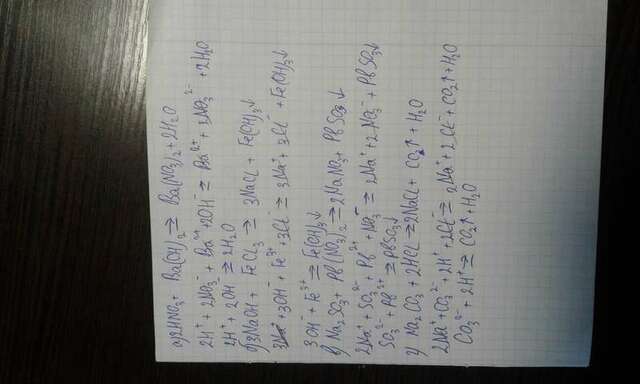 а) 2HNO₃ + Ba(OH)₂ ⇒ Ba(NO₃)₂ + 2H₂O
2H⁺ + 2NO₃⁻ + Ba²⁺ + 2OH⁻ ⇒ Ba²⁺ + 2NO₃²⁻ + 2H₂O
2H⁺ + 2OH⁻ ⇒ 2H₂O
б) 3NaOH + FeCl₃ ⇒ 3NaCl + Fe(OH)₃↓
3Na⁺ + 3OH⁻ + Fe³⁺ + 3Cl⁻ ⇒ 3Na⁺ + 3Cl⁻ + Fe(OH)₃↓
3OH⁻ + Fe³⁺ ⇒ Fe(OH)₃↓
в) Na₂SO₃ + Pb(NO₃)₂ ⇒ 2NaNO₃ + PbSO₃↓
2Na⁺ + SO₃²⁻ + Pb²⁺ + NO₃⁻ ⇒ 2Na⁺ + 2NO₃⁻ + PbSO₃↓
SO₃²⁻ + Pb²⁺ ⇒ PbSO₃↓
г) Na₂CO₃ + 2HCl ⇒ 2NaCl + CO₂↑ + H₂O
2Na⁺ + CO₃²⁻ + 2H⁺ + 2Cl⁻ ⇒ 2Na⁺ + 2Cl⁻ + CO₂↑ + H₂O
CO₃²⁻ + 2H⁺ ⇒ CO₂↑ + H₂O